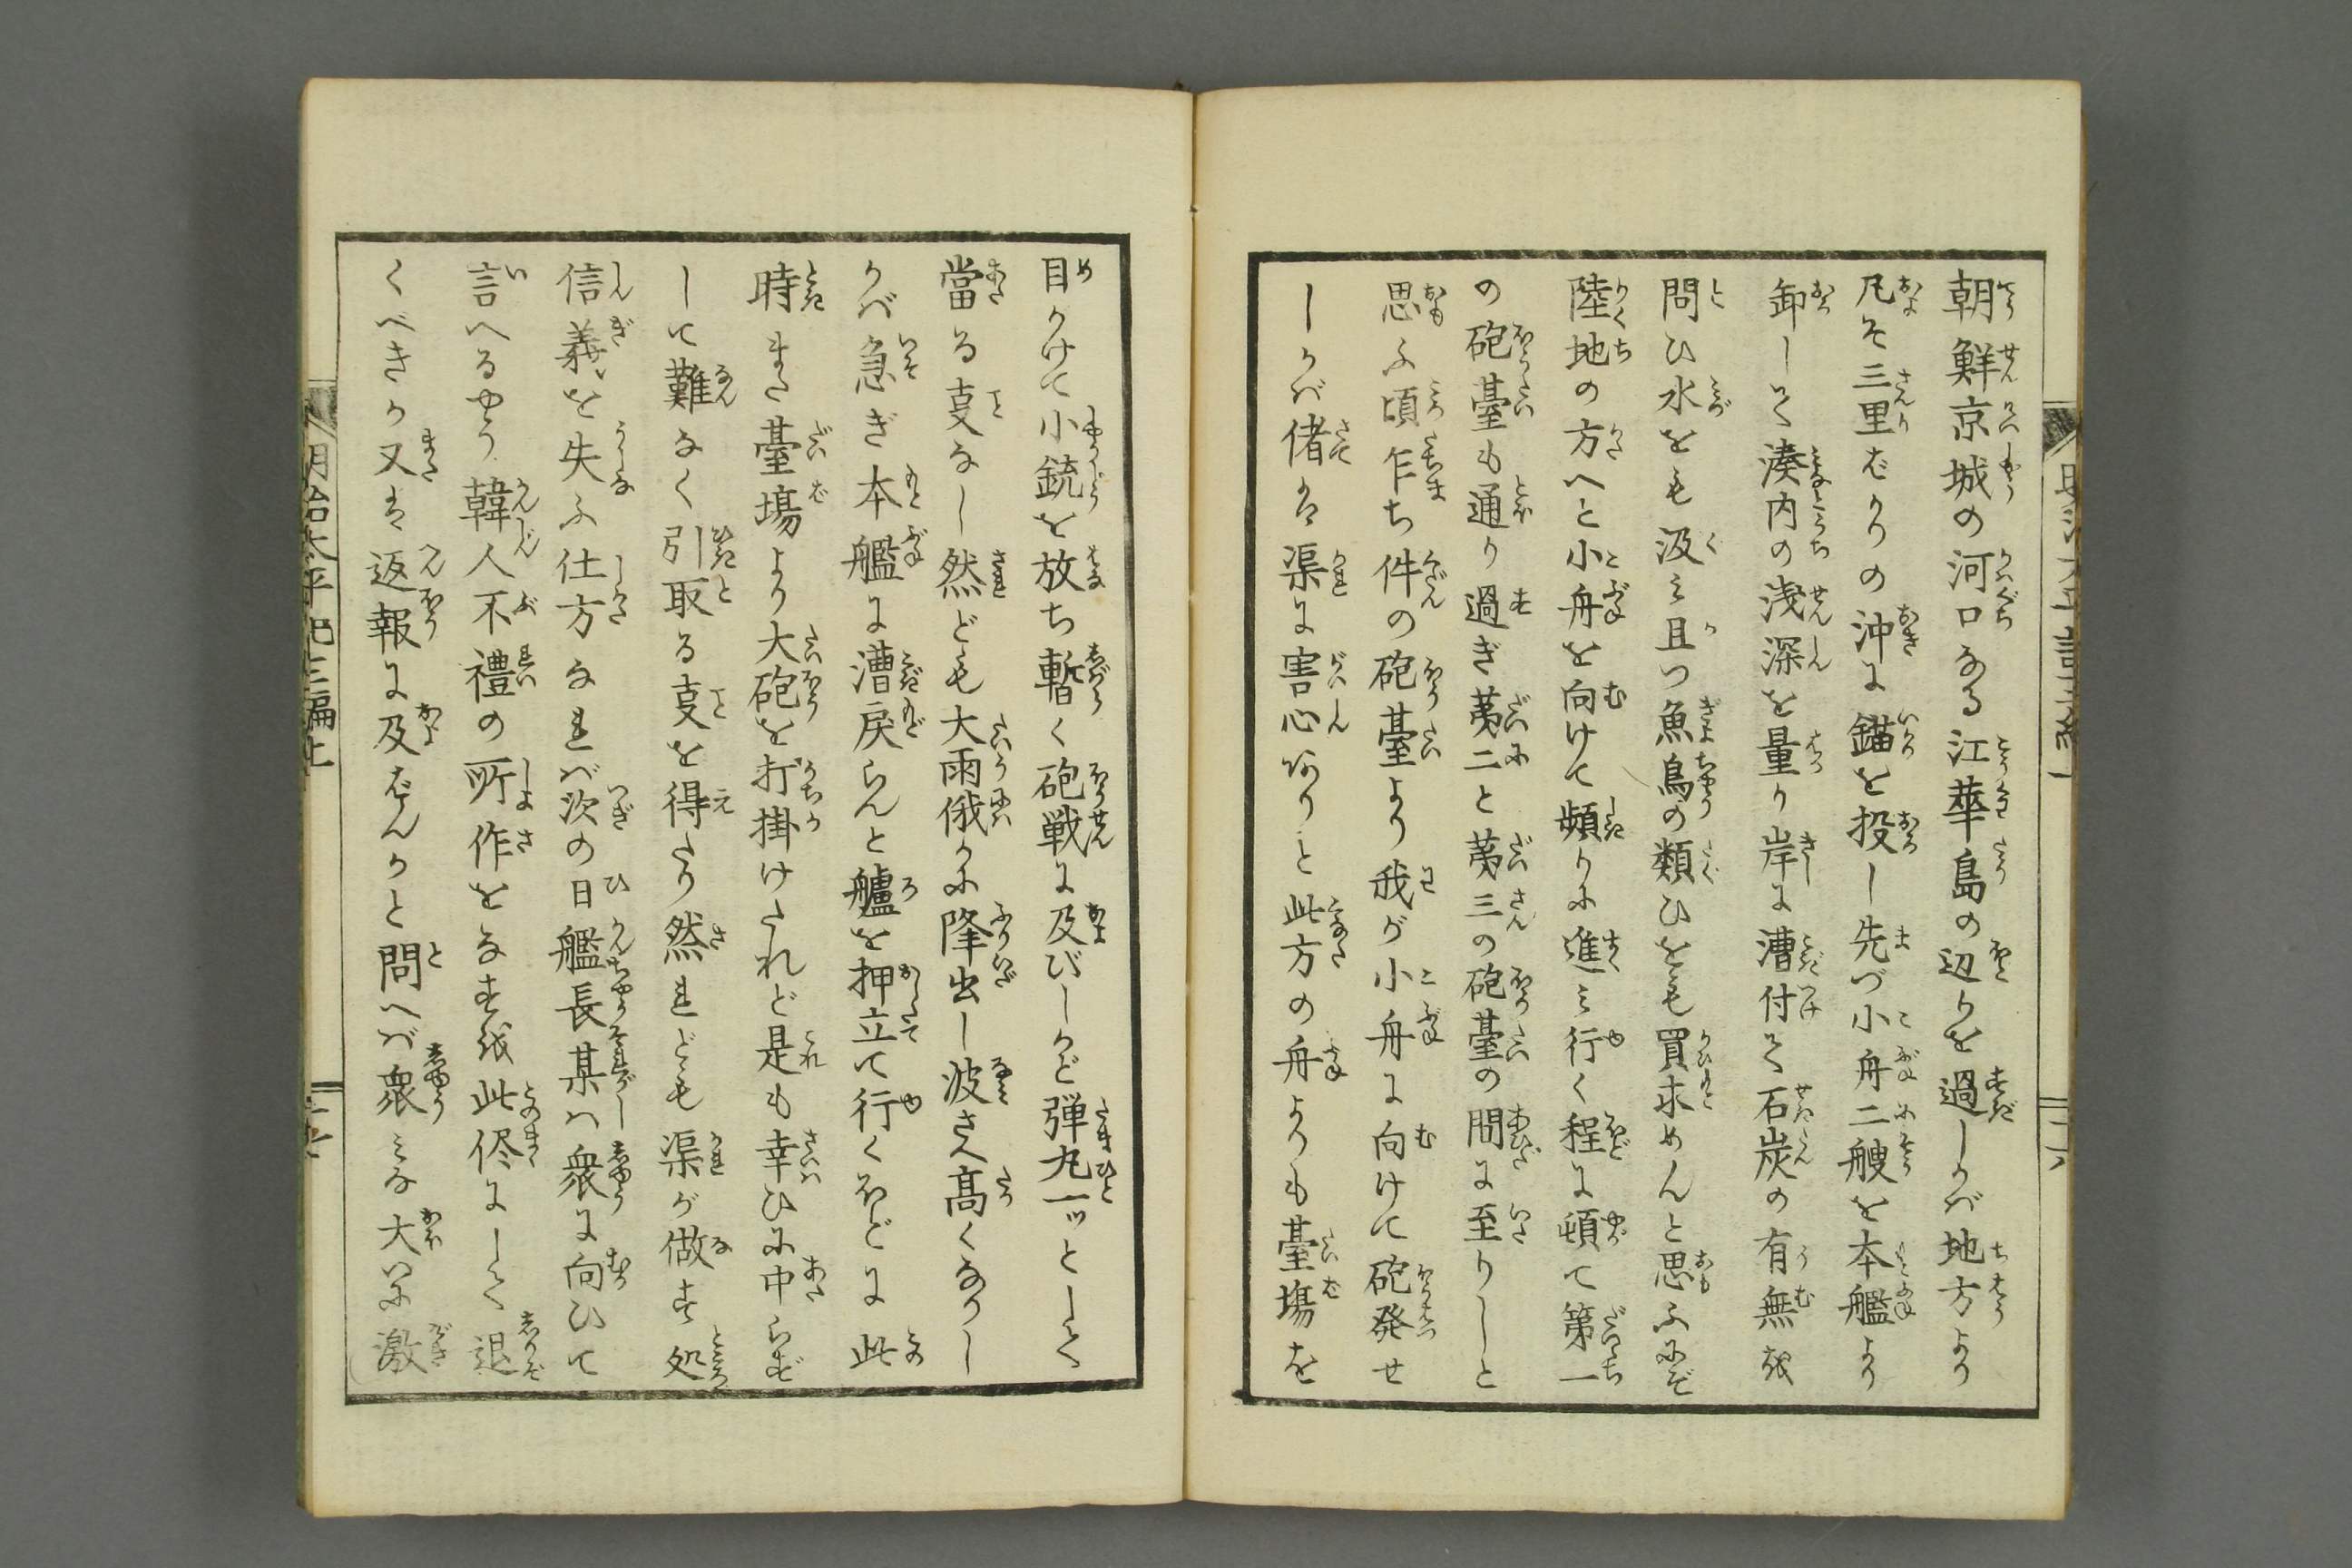 朝鮮京城の河口なる江華島の辺りを過しかバ地方より
凡そ三里ばかりの沖に錨を投し先づ小舟二艘を本艦より
卸して湊内の浅深を量り岸に漕付て石炭の有無を
問ひ水をも汲ミ且つ魚鳥の類ひをも買求めんと思ふにぞ
陸地の方へと小舟を向けて頻りに進ミ行く程に頓て第一
の砲臺も通り過ぎ第二と第三の砲臺の間に至りしと
思ふ頃乍ち件の砲臺より我が小舟に向けて砲発せ
しかバ偖ハ渠に害心ありと此方の舟よりも臺塲を
目かけて小銃を放ち暫く砲戦に及びしかど弾丸一ッとして
當る㕝なし然ども大雨俄かに降出し波さへ高くなりし
かバ急ぎ本艦に漕戻らんと艫を押立て行くほどに此
時また臺塲より大砲を打掛けたれど是も幸ひに中らず
して難なく引取る㕝を得たり然れども渠が做す処
信義を失ふ仕方なれバ次の日艦長某ハ衆に向ひて
言へるやう韓人不禮の所作をなすを此侭にして退
くべきか又ハ返報に及ばんかと問へバ衆ミな大いに激
明治太平記三編上